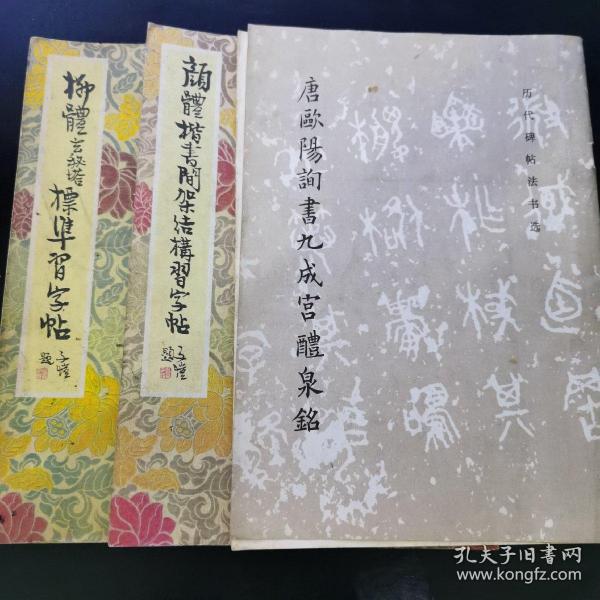 柳體玄秘塔標準習字帖
子愷題
顔體楷書間架结構習字帖
子愷題
唐歐陽詢書九成宫醴泉銘
历代碑帖法书选
孔夫子旧书网
www.kongfz.com